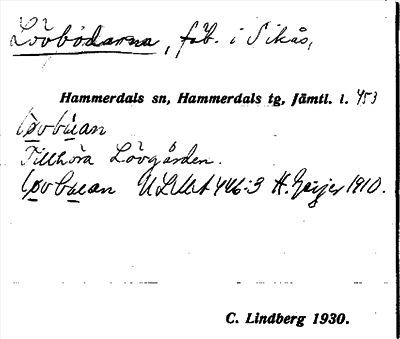 Lövbodarna, fäb. i Sikås,
Hammerdals sn, Hammerdals tg, Jämtl. l. 453
løvbúan
Tillhöra Lövgården.
løvbuan ULMA 446:3 H. Geijer 1910.
C. Lindberg 1930.